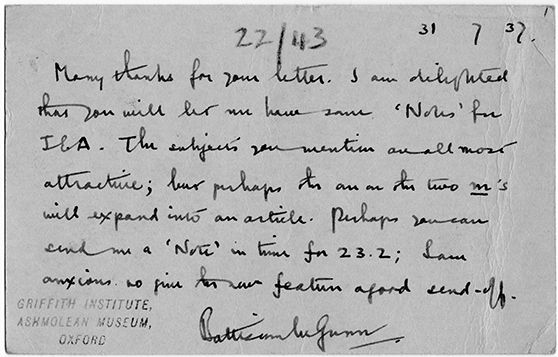 22/43
31 7 37.
Many thanks for your letter. I am delighted
that you will let me have some 'Notes' for
JEA. The subjects you mention are all most
attractive; but perhaps the one on the two m's
will expand into an article. Perhaps you can
send me a 'Note' in time for 23.2; I am
anxious to give the new feature a good send-off.
GRIFFITH INSTITUTE,
ASHMOLEAN MUSEUM,
OXFORD
Battiscombe Gunn